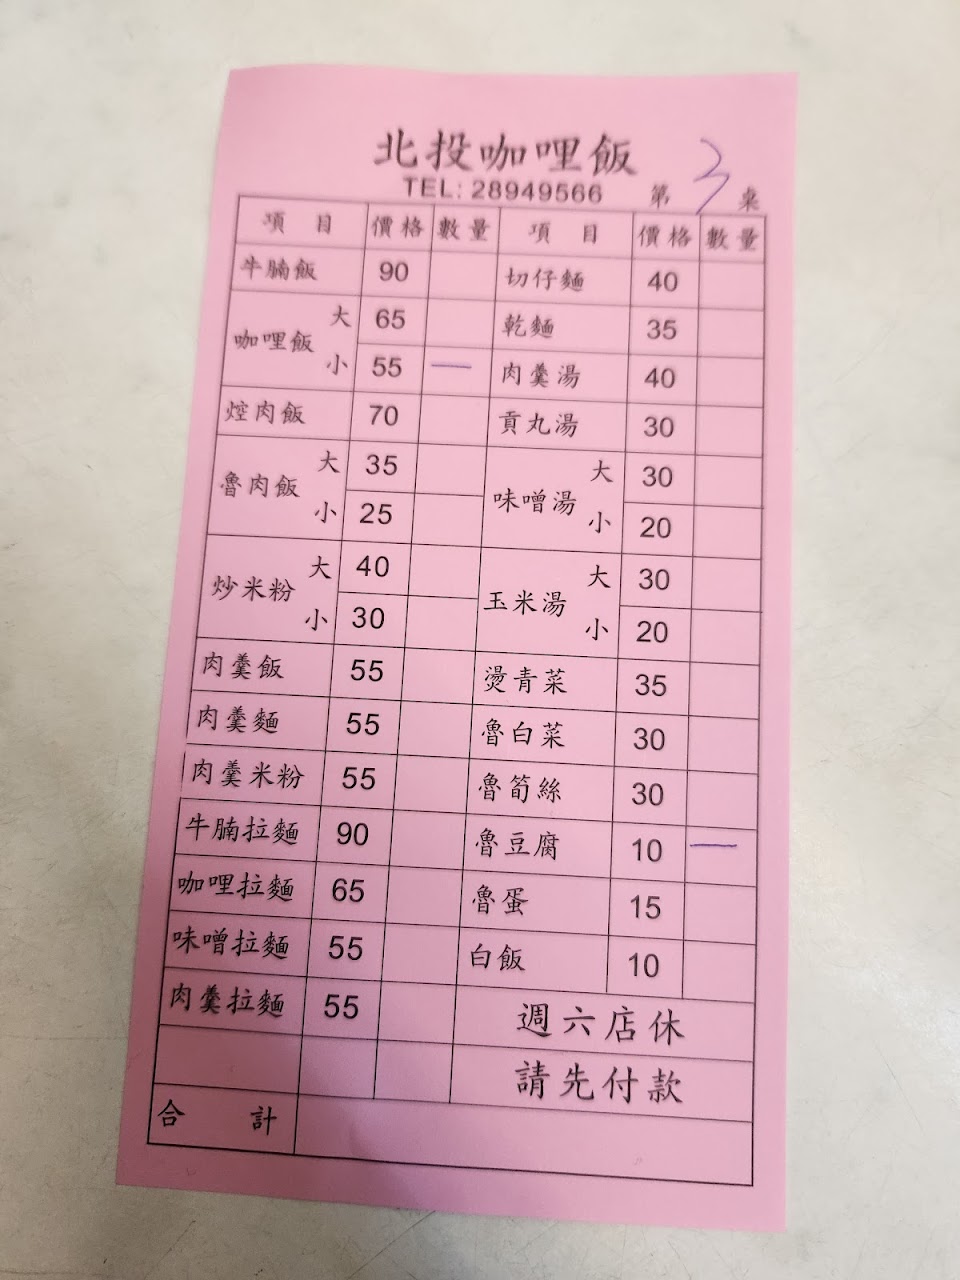 北投咖哩飯
TEL: 28949566 第 3 桌
項目 價格 數量 項目 價格 數量
牛腩飯 90 切仔麵 40
咖哩飯 大 65 乾麵 35
小 55 一 肉羹湯 40
焢肉飯 70 貢丸湯 30
魯肉飯 大 35 味噌湯 大 30
小 25 小 20
炒米粉 大 40 玉米湯 大 30
小 30 小 20
肉羹飯 55 燙青菜 35
肉羹麵 55 魯白菜 30
肉羹米粉 55 魯筍絲 30
牛腩拉麵 90 魯豆腐 10 一
咖哩拉麵 65 魯蛋 15
味噌拉麵 55 白飯 10
肉羹拉麵 55 週六店休
請先付款
合計